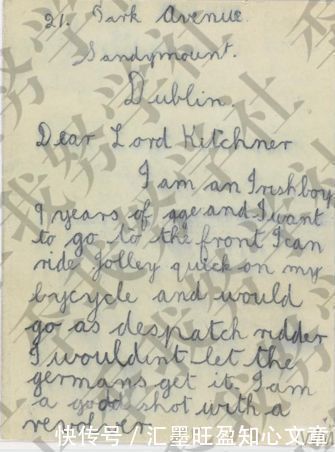 21. Park Avenue.
Sandymount.
Dublin.
Dear Lord Kitchner
I am an Irish boy
9 years of age and I want
to go to the front I can
ride jolley quick on my
bycycle and would
go as despatch ridder
I wouldint let the
germans get it. I am
a good shot with a
revolver
快传号 / 汇墨旺盈知心文章